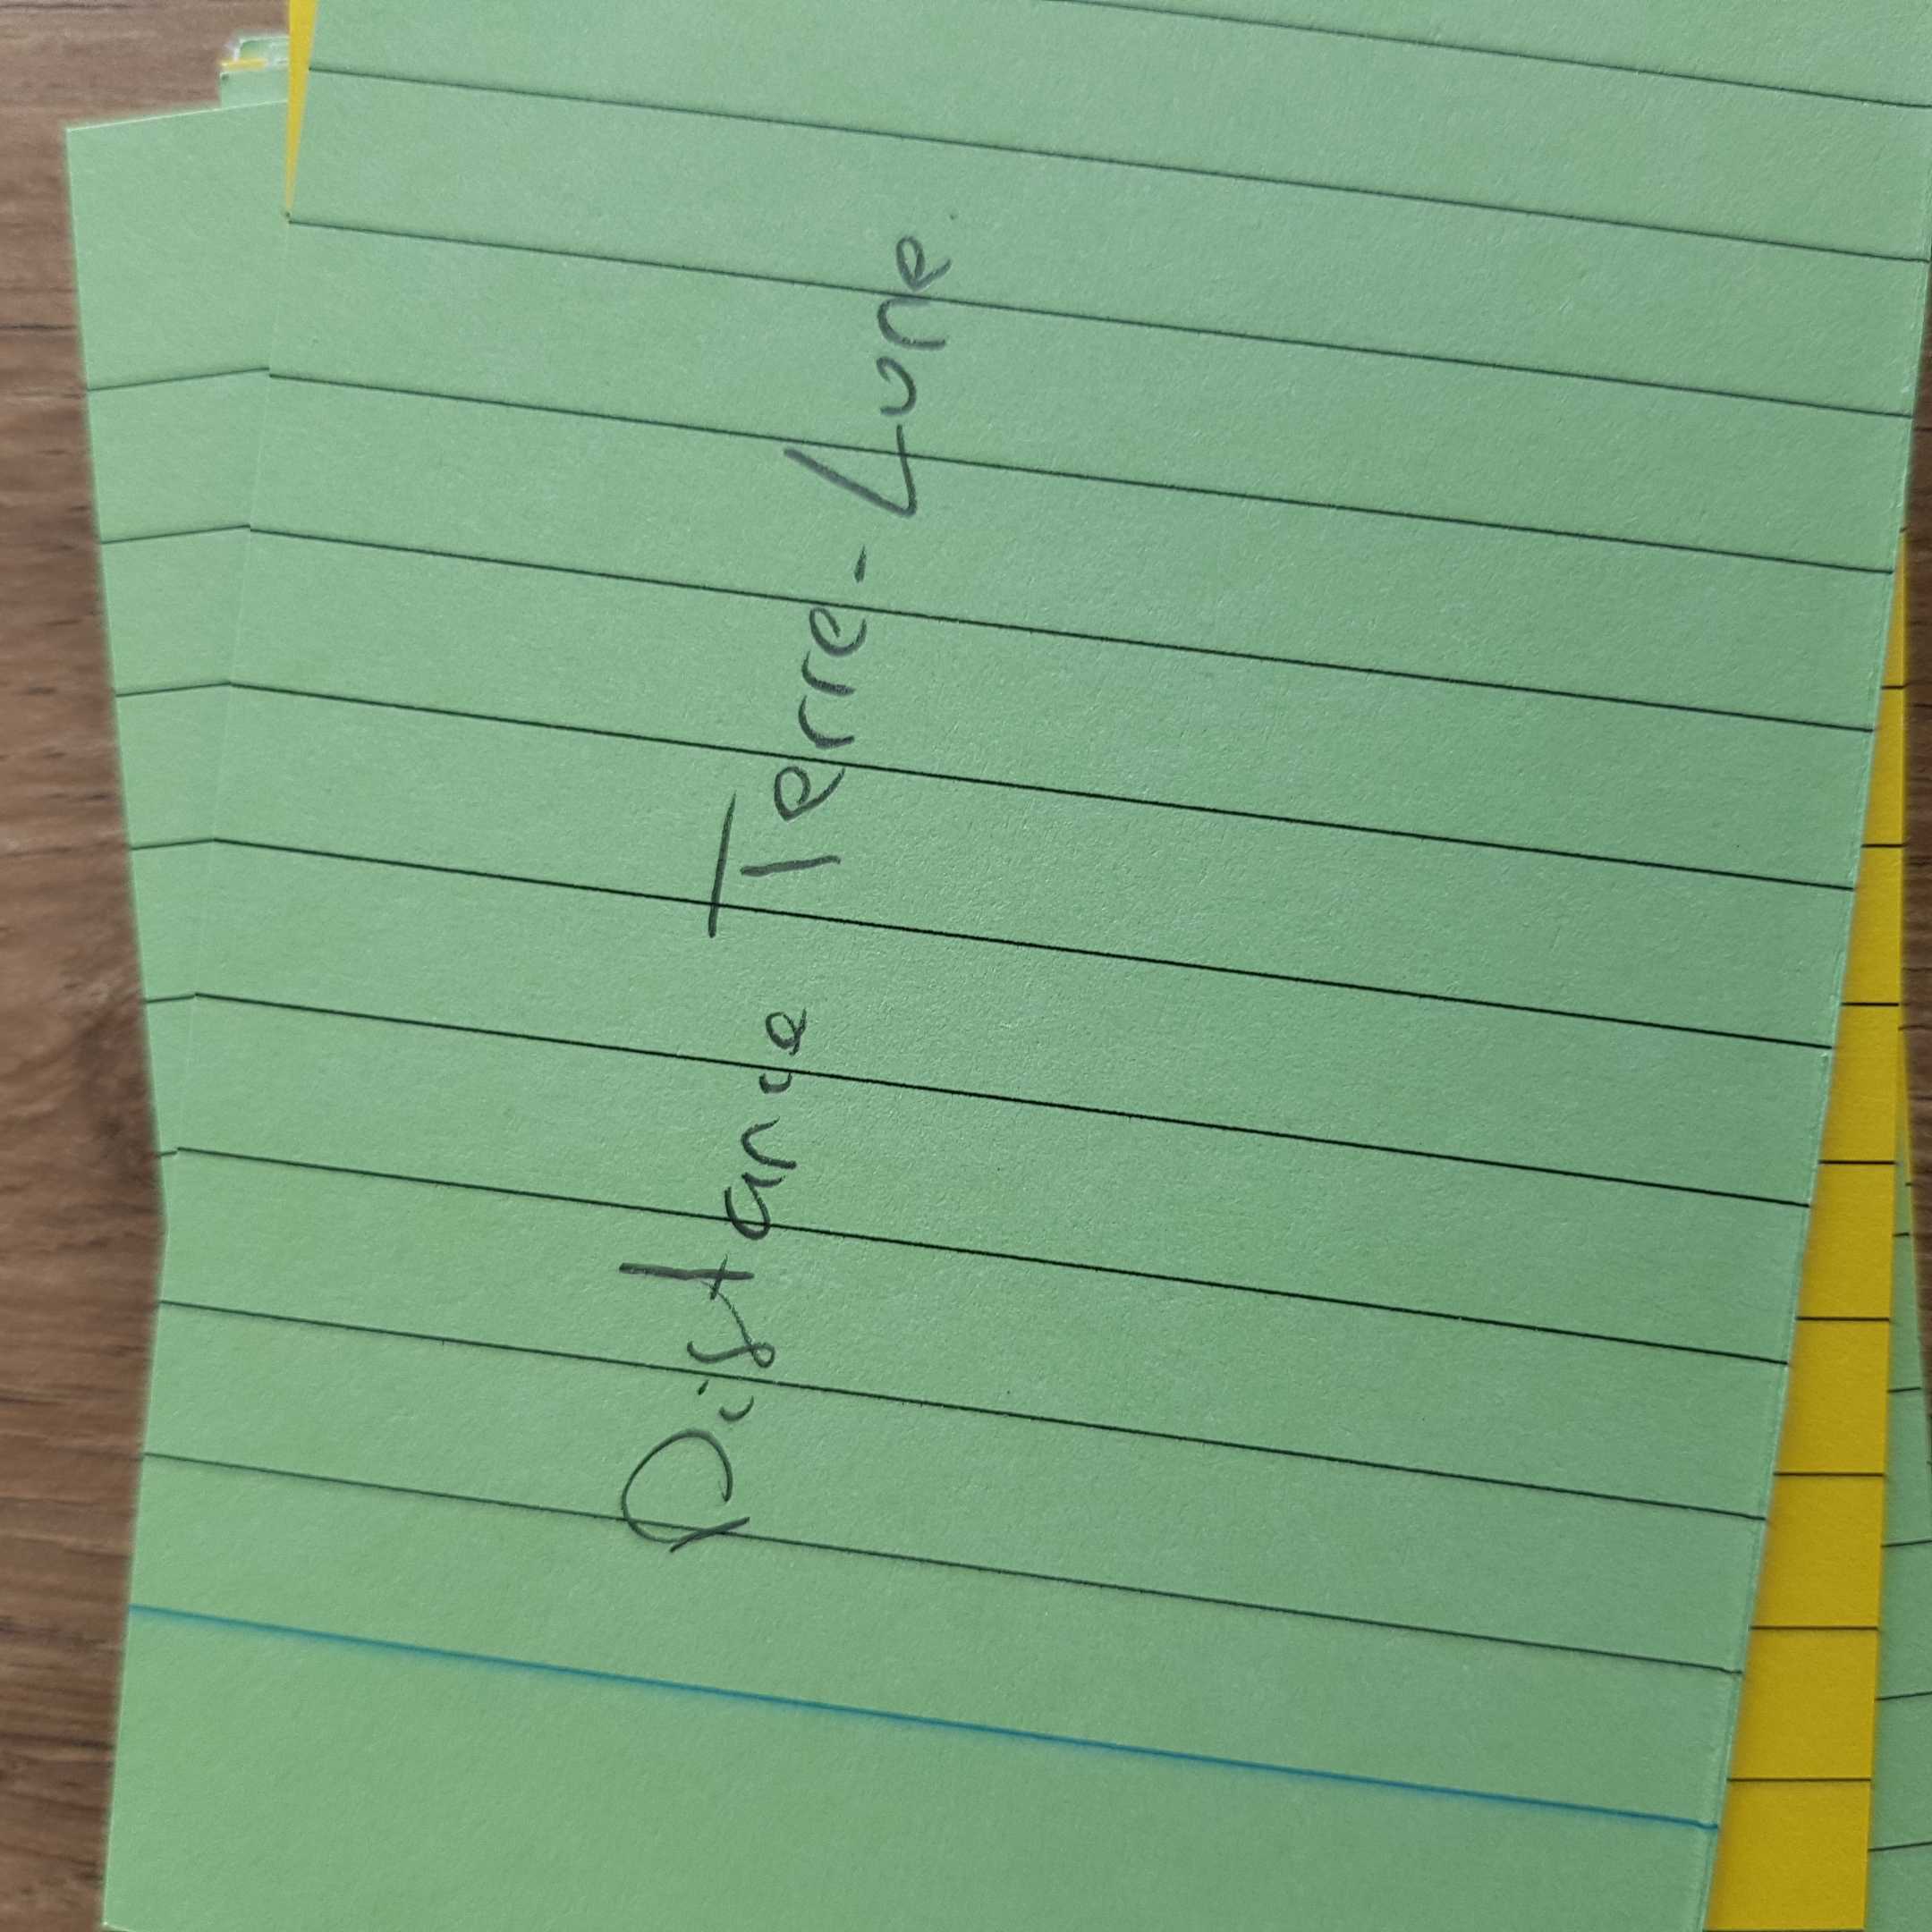 Distance Terre-Lune